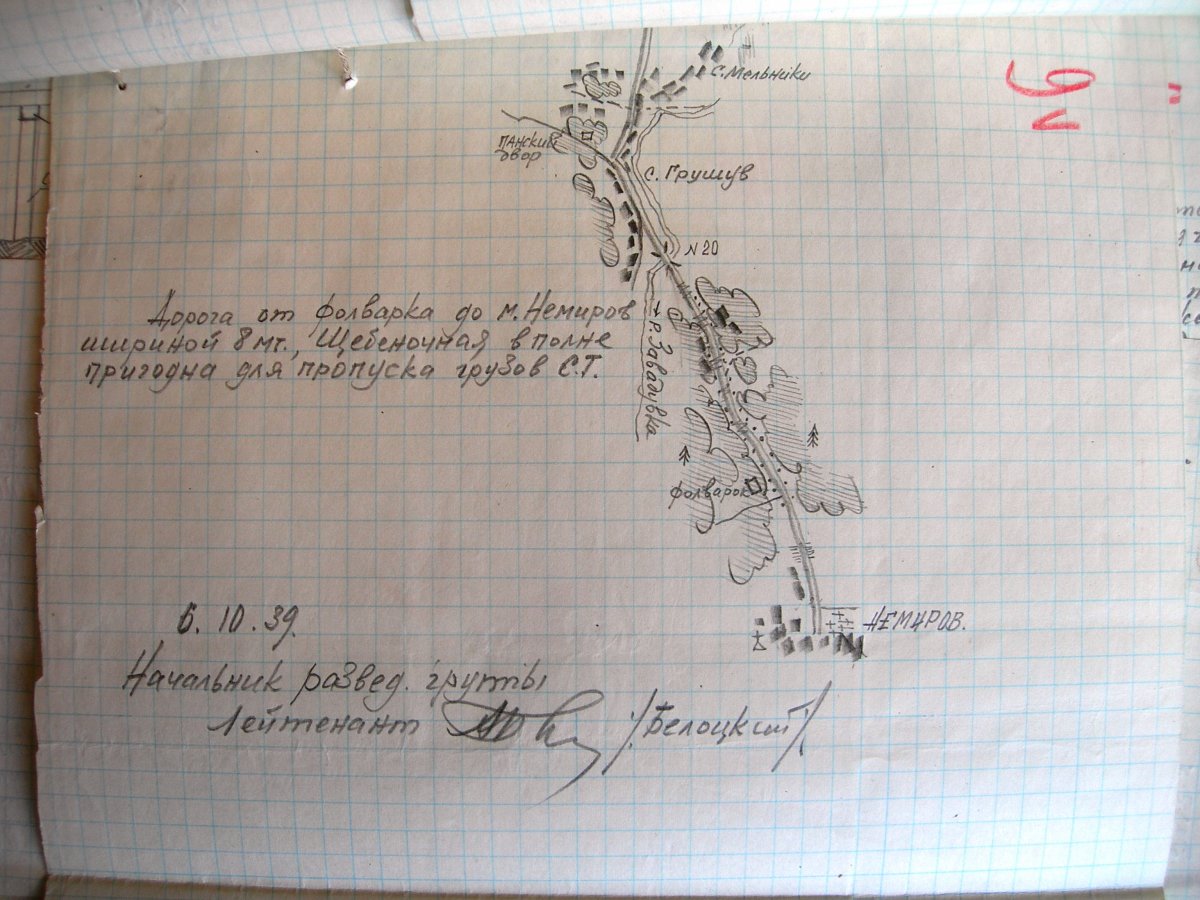 с. Мельники
ПАНСКИЙ
ДВОР
с. Грушув
N 20
Дорога от фолварка до м. Немиров
шириной 8 мт., Щебеночная, вполне
пригодна для пропуска грузов С.Т.
р. Завадувка
фолварок
НЕМИРОВ.
6. 10. 39.
Начальник развед. группы
Лейтенант /Белоцкий/